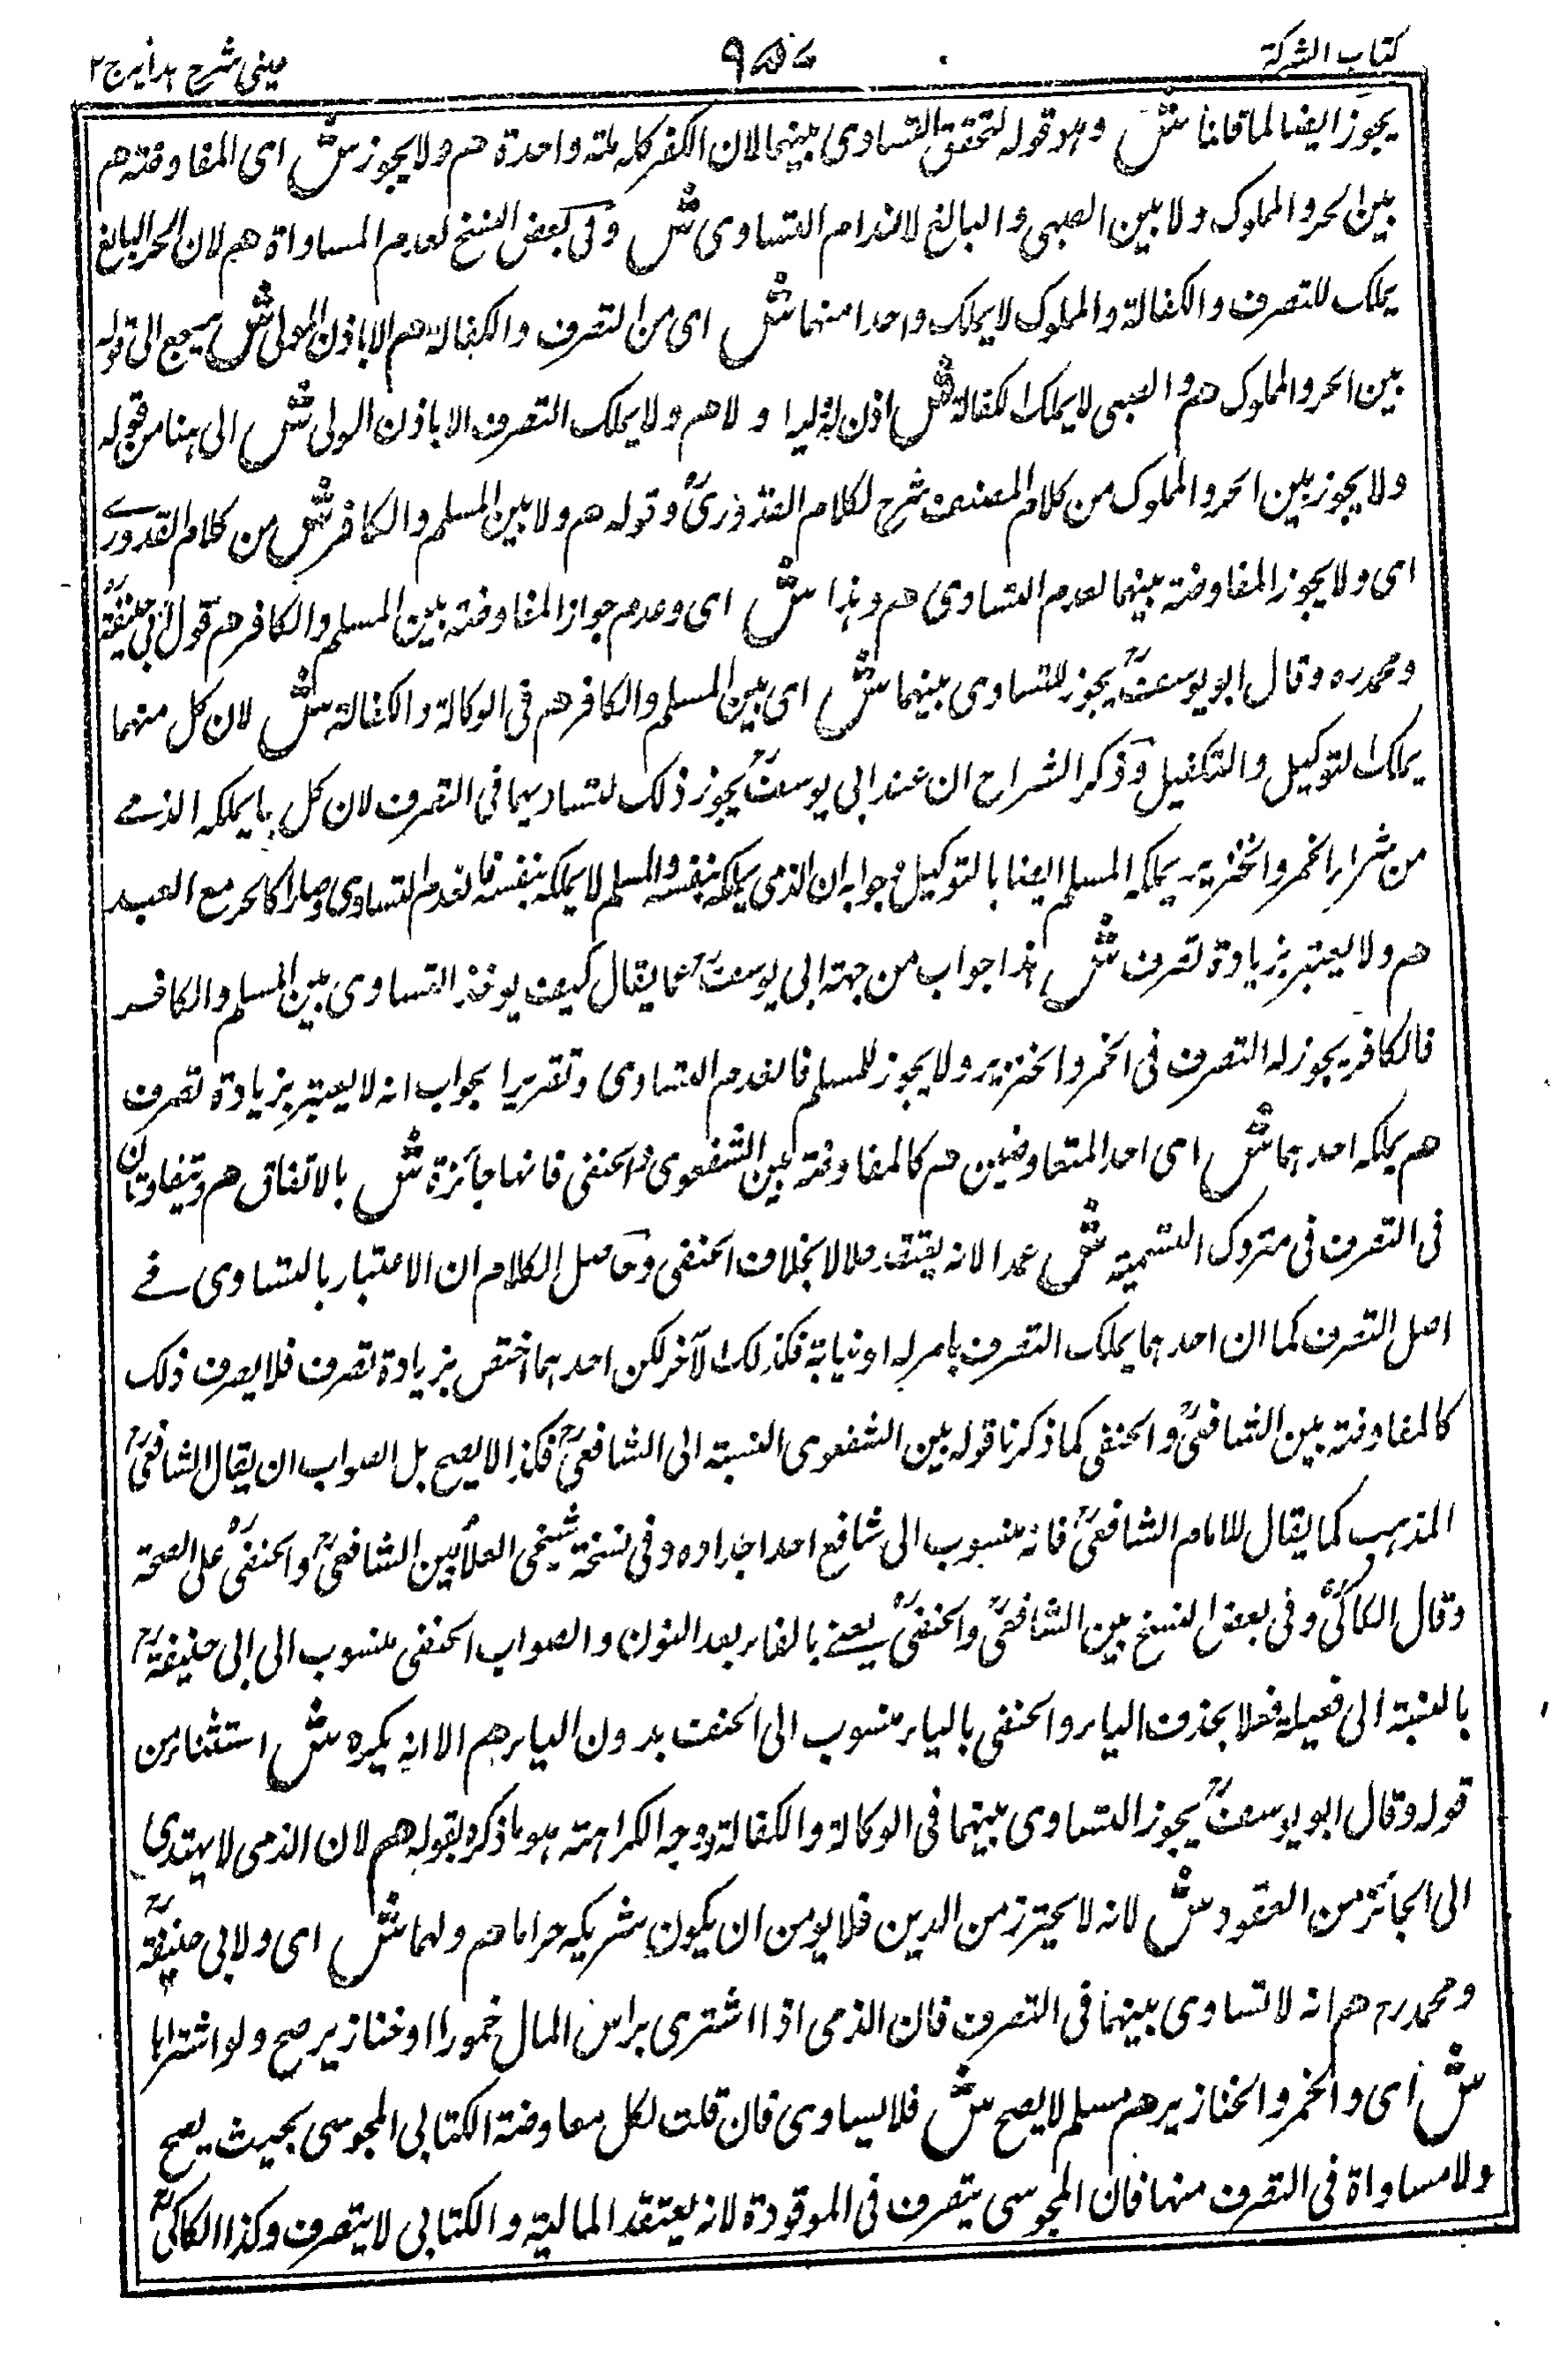 كتاب الشركة
٩٥٧
عينى شرح هدايه ج ٢
يجوز ايضا لما قلنا ش وهو قوله لتحقق التساوى بينهما لان الكفر كله ملة واحدة هم ولا يجوز ش اى المفاوضة هم
بين الحر والمملوك ولا بين الصبى والبالغ لانعدام التساوى ش وفى بعض النسخ لعدم المساواة هم لان الحر البالغ
يملك التصرف والكفالة والمملوك لا يملك واحدا منهما ش اى من التصرف والكفالة هم الا باذن المولى ش يرجع الى قوله
بين الحر والمملوك هم والصبى لا يملك الكفالة ش اذن له ليدا و لا هم ولا يملك التصرف الا باذن الولى ش الى هنا من قوله
ولا يجوز بين الحر والمملوك من كلام المصنف شرح لكلام القدورىؒ وقوله هم ولا بين المسلم والكافر ش من كلام القدورى
اى ولا يجوز المفاوضة بينهما لعدم التساوى هم وهذا ش اى وعدم جواز المفاوضة بين المسلم والكافر هم قول ابى حنيفةؒ
ومحمد ره وقال ابو يوسفؒ يجوز للتساوى بينهما ش اى بين المسلم والكافر هم فى الوكالة والكفالة ش لان كل منهما
يملك التوكيل والتكفيل وذكر الشراح ان عند ابى يوسفؒ يجوز ذلك لتساويهما فى التصرف لان كل ما يملكه الذمى
من شراء الخمر والخنزير يملكه المسلم ايضا بالتوكيل وجوابه ان الذمى يملكه بنفسه والمسلم لا يملكه بنفسه فانعدم التساوى وصار كالحر مع العبد
هم ولا يعتبر بزيادة تصرف ش هذا جواب من جهة ابى يوسفؒ عما يقال كيف يوخذ التساوى بين المسلم والكافر
فالكافر يجوز له التصرف فى الخمر والخنزير ولا يجوز للمسلم فانعدم التساوى وتقرير الجواب انه لا يعتبر بزيادة تصرف
هم يملكه احدهما ش اى احد المتفاوضين هم كالمفاوضة بين الشفعوى والحنفى فانها جائزة ش بالاتفاق هم ويتفاوتان
فى التصرف فى متروك التسمية ش عمدا لانه يعتقد حلالا بخلاف الحنفى وحاصل الكلام ان الاعتبار بالتساوى فى
اصل التصرف كما ان احدهما يملك التصرف بامر له او نيابة فكذلك الآخر لكن احدهما اختص بزيادة تصرف فلا يصرف ذلك
كالمفاوضة بين الشافعىؒ والحنفى كما ذكرنا قوله بين الشفعوى النسبة الى الشافعىؒ فكذا لا يصح بل الصواب ان يقال الشافعىؒ
المذهب كما يقال للامام الشافعىؒ فانه منسوب الى شافع احد اجداده وفى نسخة شيخى العلاؒ بين الشافعىؒ والحنفىؒ على الصحة
وقال الكاكىؒ وفى بعض النسخ بين الشافعىؒ والحنفىؒ يعنى بالفاء بعد النون والصواب الحنفى منسوب الى ابى حنيفةؒ
بالنسبة الى فعيلة فعلا بحذف الياء والحنفى بالياء منسوب الى الحنف بدون الياء هم الا انه يكره ش استثناء من
قوله وقال ابو يوسفؒ يجوز التساوى بينهما فى الوكالة والكفالة ووجه الكراهته هو ما ذكره بقوله هم لان الذمى لا يهتدى
الى الجائز من العقود ش لانه لا يحترز من الدين فلا يومن ان يكون شريكه حراما هم ولهما ش اى ولابى حنيفةؒ
ومحمد رح هم انه لا تساوى بينهما فى التصرف فان الذمى اذا اشترى براس المال خمورا او خنازير صح ولو اشتراها
ش اى والخمر والخنازير هم مسلم لا يصح ش فلا يساوى فان قلت لكل معاوضة الكتابى المجوسى بحيث يصح
ولا مساواة فى التصرف منها فان المجوسى يتصرف فى الموقوذة لانه يعتقد المالية والكتابى لا يتصرف وكذا الكاكىؒ